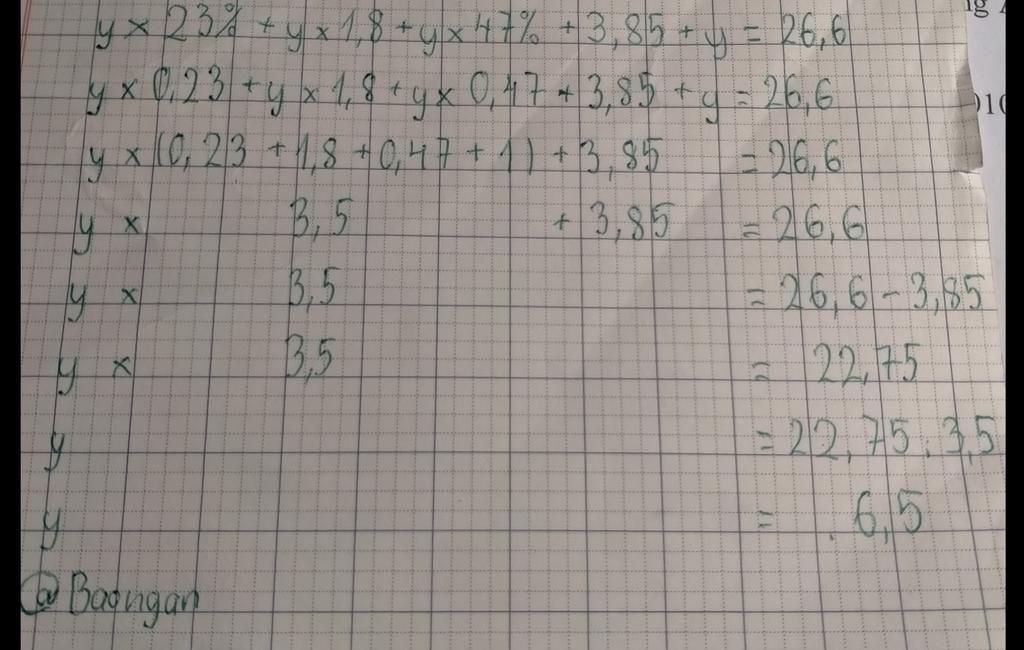 y × 23% + y × 1,8 + y × 47% + 3,85 + y = 26,6
y × 0,23 + y × 1,8 + y × 0,47 + 3,85 + y = 26,6
y × (0,23 + 1,8 + 0,47 + 1) + 3,85 = 26,6
y × 3,5 + 3,85 = 26,6
y × 3,5 = 26,6 - 3,85
y × 3,5 = 22,75
y = 22,75 : 3,5
y = 6,5
@ Baongan